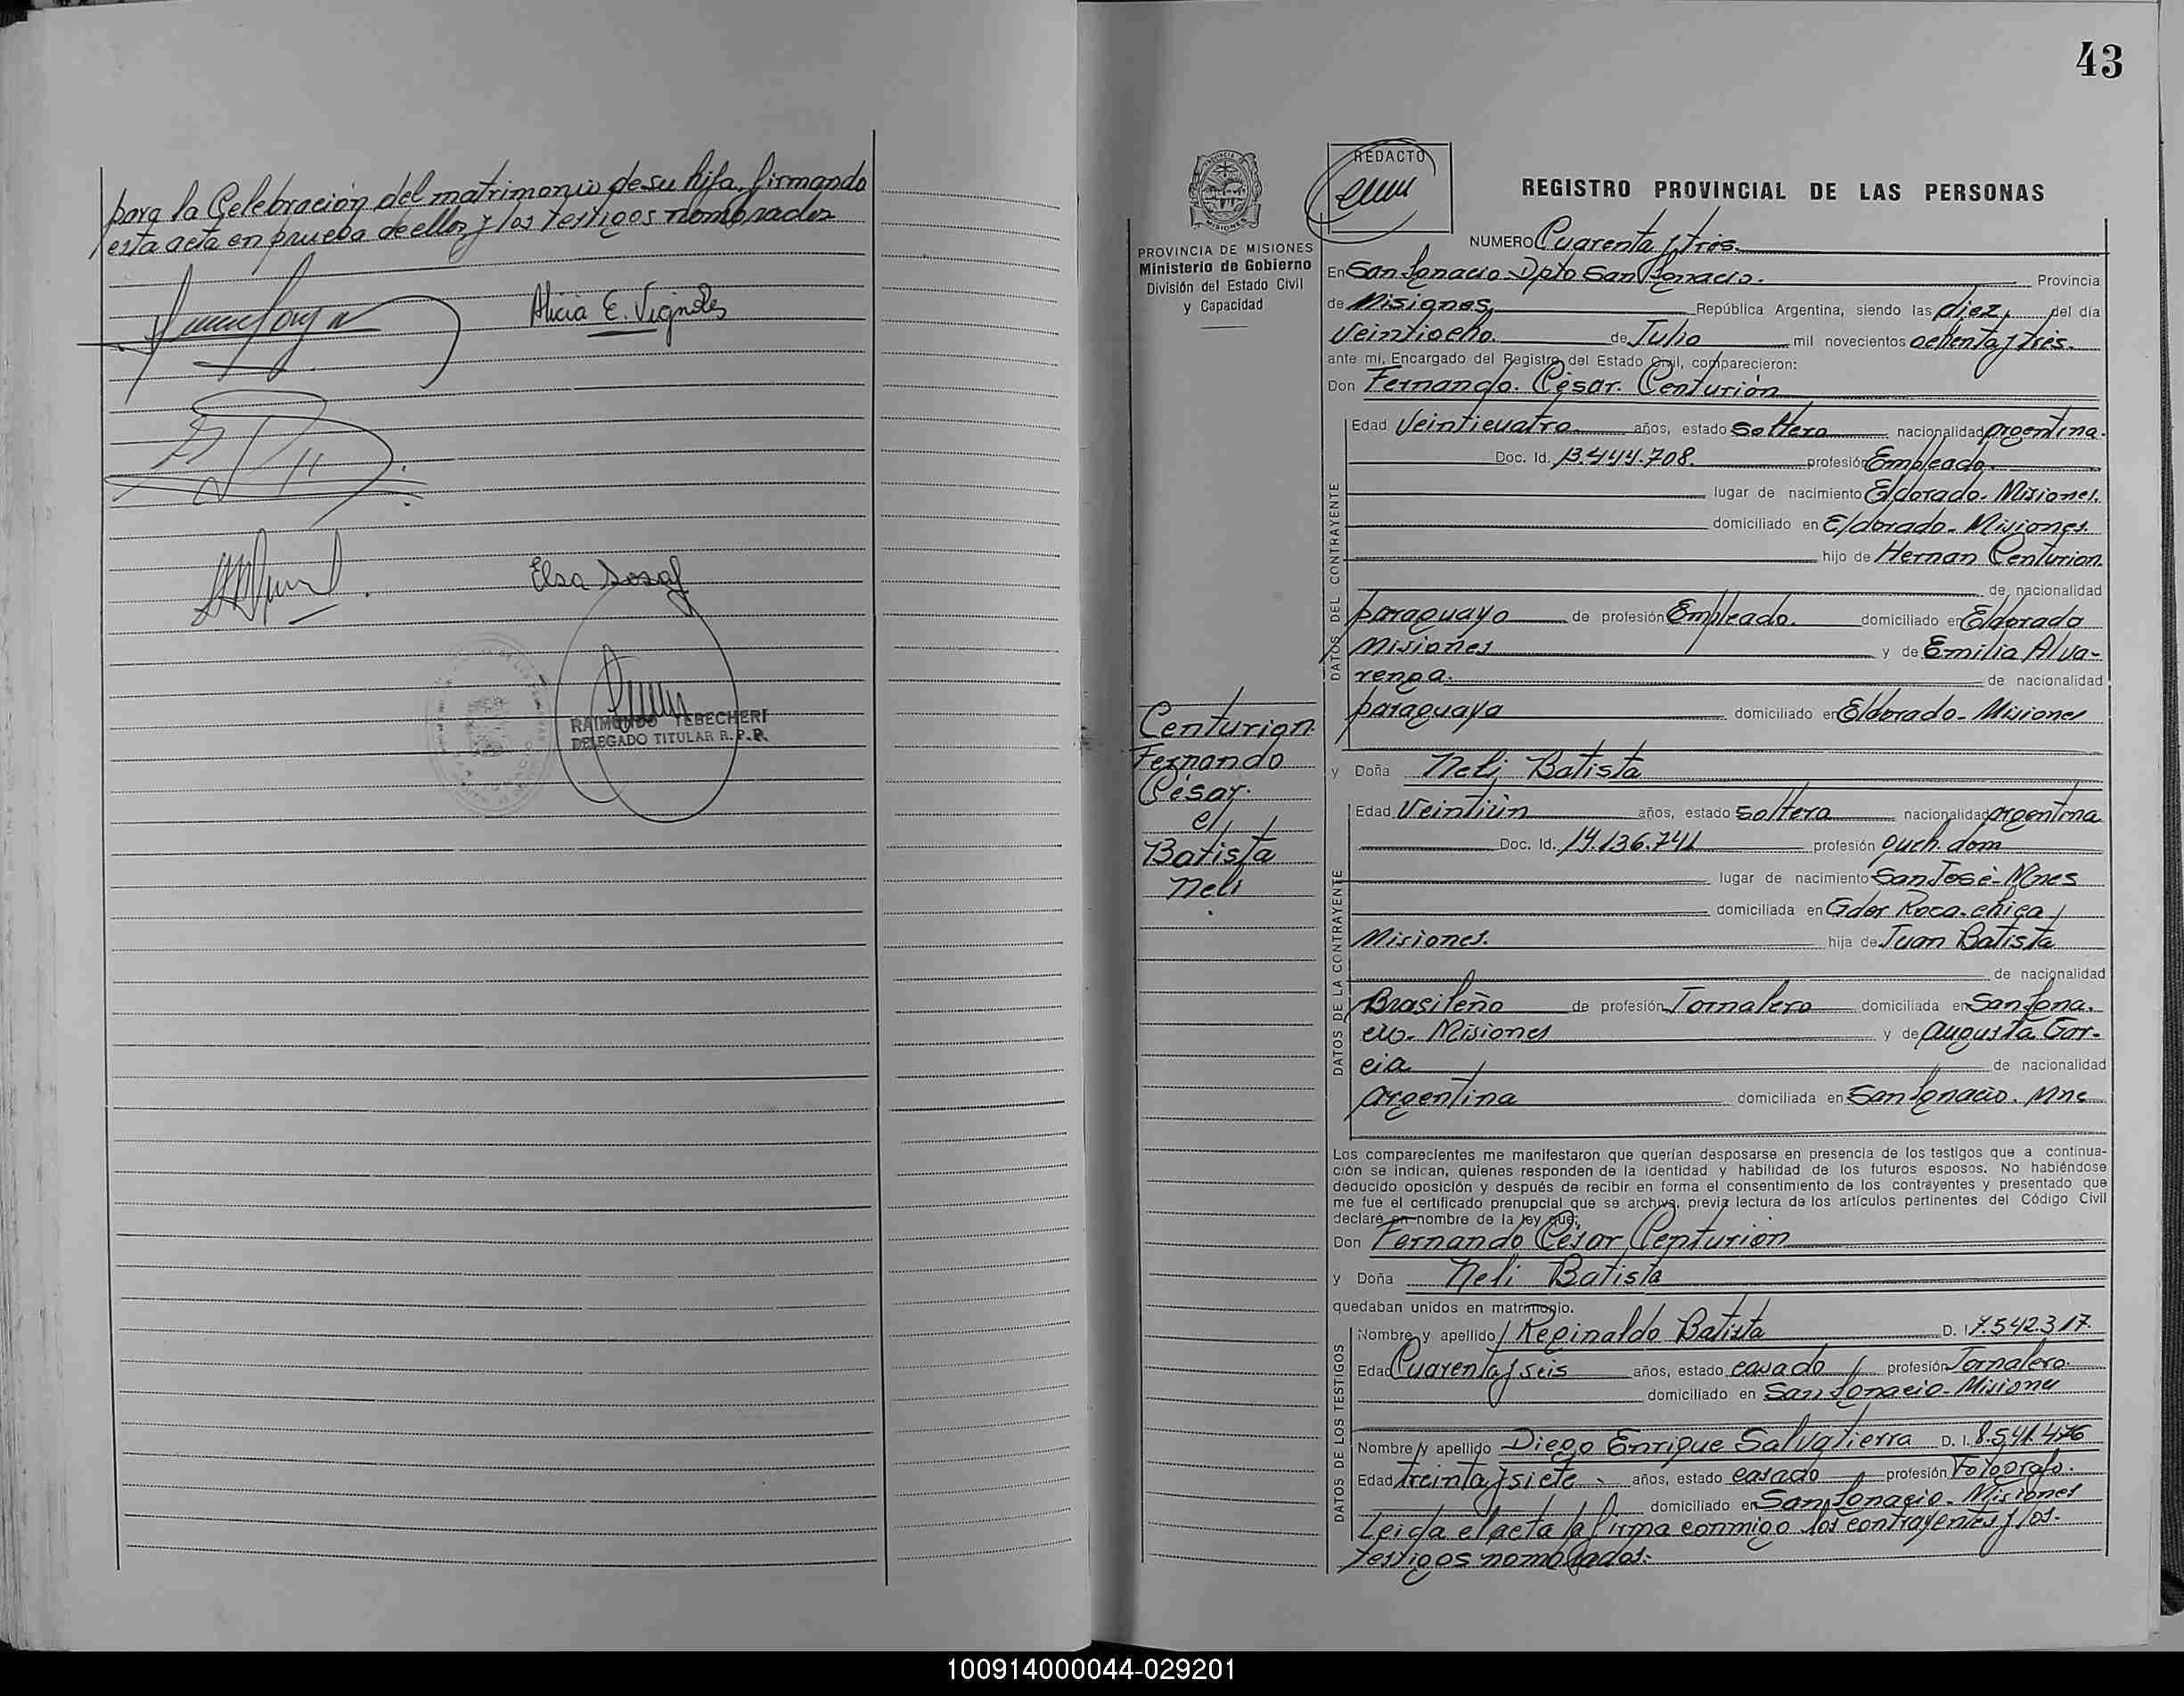 para la Celebración del matrimonio de su hija, firmando
esta acta en prueba de ello y los testigos nombrados
Alicia E. Vignoles
Elsa Sosa
RAIMUNDO TEBECHERI
DELEGADO TITULAR R.P.P.
43
PROVINCIA DE MISIONES
Ministerio de Gobierno
División del Estado Civil
y Capacidad
REDACTO
REGISTRO PROVINCIAL DE LAS PERSONAS
NUMERO Cuarenta y tres.
En San Ignacio Dpto San Ignacio. Provincia
de Misiones, República Argentina, siendo las diez, del día
Veintiocho. de Julio mil novecientos ochenta y tres.
ante mí, Encargado del Registro del Estado Civil, comparecieron:
Don Fernando. César. Centurión
DATOS DEL CONTRAYENTE
Edad Veinticuatro años, estado Soltero nacionalidad argentina.
Doc. Id. 13.444.708. profesión Empleado.
lugar de nacimiento Eldorado. Misiones.
domiciliado en Eldorado. Misiones.
hijo de Hernan Centurion.
de nacionalidad
paraguayo de profesión Empleado. domiciliado en Eldorado
Misiones y de Emilia Alva-
renga. de nacionalidad
paraguaya domiciliado en Eldorado - Misiones
Centurion
Fernando
César.
c/
Batista
Neli
y Doña Neli Batista
DATOS DE LA CONTRAYENTE
Edad Veintiún años, estado soltera nacionalidad argentina
Doc. Id. 14.136.741 profesión queh. dom
lugar de nacimiento San José - Mnes
domiciliada en Gdor Roca. chica
Misiones. hija de Juan Batista
de nacionalidad
Brasileño de profesión Jornalero domiciliada en San Igna.
cio. Misiones y de Augusta Gar-
cia de nacionalidad
argentina domiciliada en San Ignacio. Mne
Los comparecientes me manifestaron que querían desposarse en presencia de los testigos que a continua-
ción se indican, quienes responden de la identidad y habilidad de los futuros esposos. No habiéndose
deducido oposición y después de recibir en forma el consentimiento de los contrayentes y presentado que
me fue el certificado prenupcial que se archiva, previa lectura de los artículos pertinentes del Código Civil
declaré en nombre de la ley que:
Don Fernando César Centurión
y Doña Neli Batista
quedaban unidos en matrimonio.
DATOS DE LOS TESTIGOS
Nombre y apellido Reginaldo Batista D. I. 7.542.317
Edad Cuarenta y seis años, estado casado profesión Jornalero.
domiciliado en San Ignacio - Misiones
Nombre y apellido Diego Enrique Salvatierra D. I. 8.541.476
Edad treinta y siete años, estado casado profesión Fotografo.
domiciliado en San Ignacio. Misiones
Leida el acta la firma conmigo los contrayentes y los
testigos nombrados.
100914000044-029201